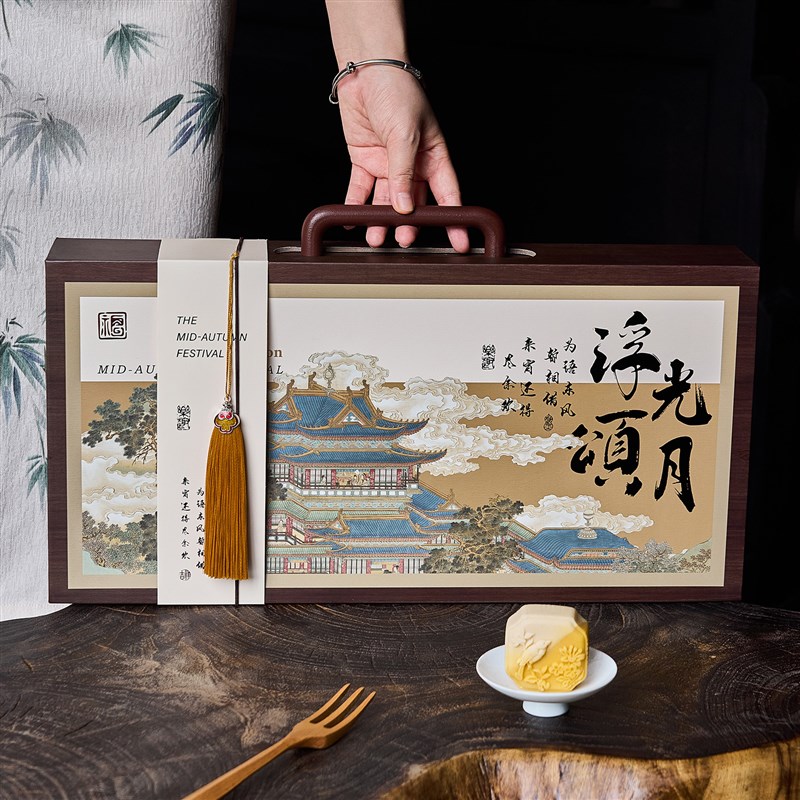 福
THE
MID-AUTUMN
FESTIVAL
on
MID-AU
AL
浮光
頌月
为语东风
暂相借
来宵还得
尽余欢
为语东风暂相借
来宵还得尽余欢